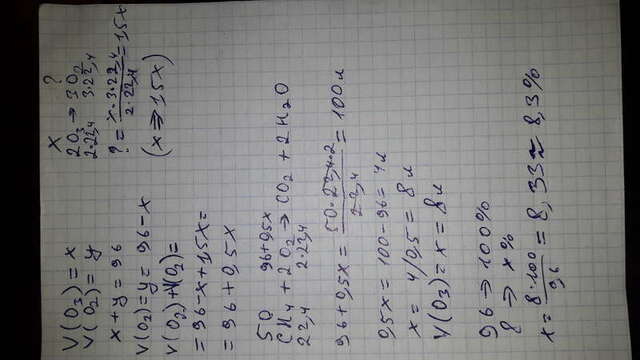 V(O₃) = x
V(O₂) = y
x + y = 96
V(O₂) = y = 96 - x
V(O₂) + V(O₂) =
= 96 - x + 1,5x =
= 96 + 0,5x
x ?
2O₃ → 3O₂
2·22,4 3·22,4
? = x·3·22,4 / 2·22,4 = 1,5x
(x ⇒ 1,5x)
50 96+0,5x
CH₄ + 2O₂ → CO₂ + 2H₂O
22,4 2·22,4
96 + 0,5x = 50·22,4·2 / 22,4 = 100л
0,5x = 100 - 96 = 4л
x = 4/0,5 = 8л
V(O₃) = x = 8л
96 → 100%
8 → x%
x = 8·100 / 96 = 8,33 ≈ 8,3%